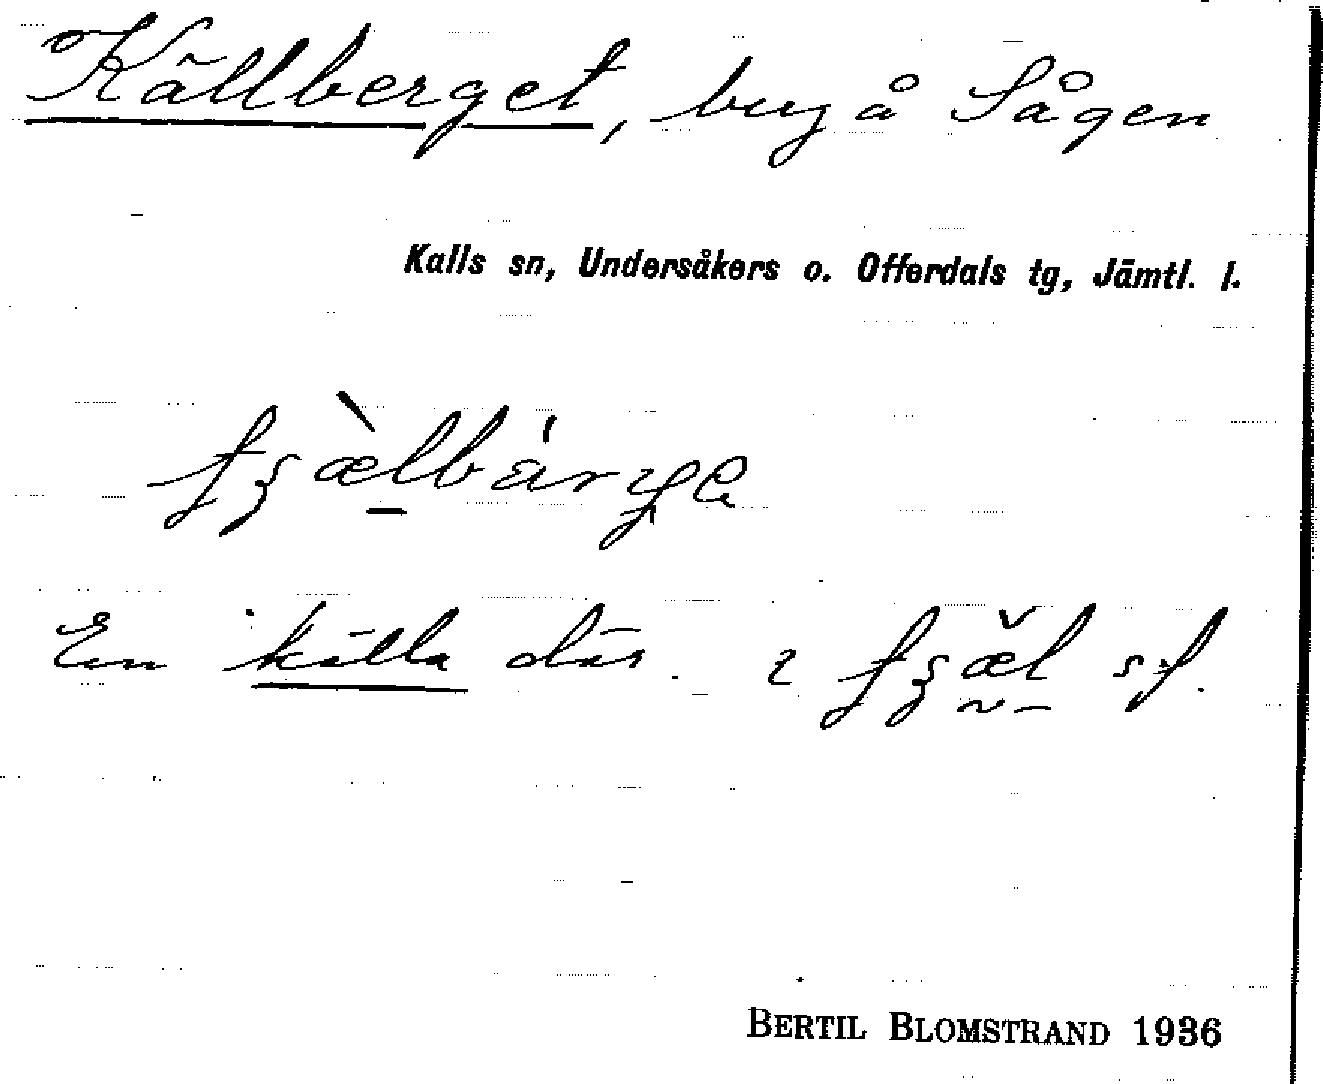 Källberget, bug å Sågen
Kalls sn, Undersåkers o. Offerdals tg, Jämtl. l.
En källa där
BERTIL BLOMSTRAND 1936